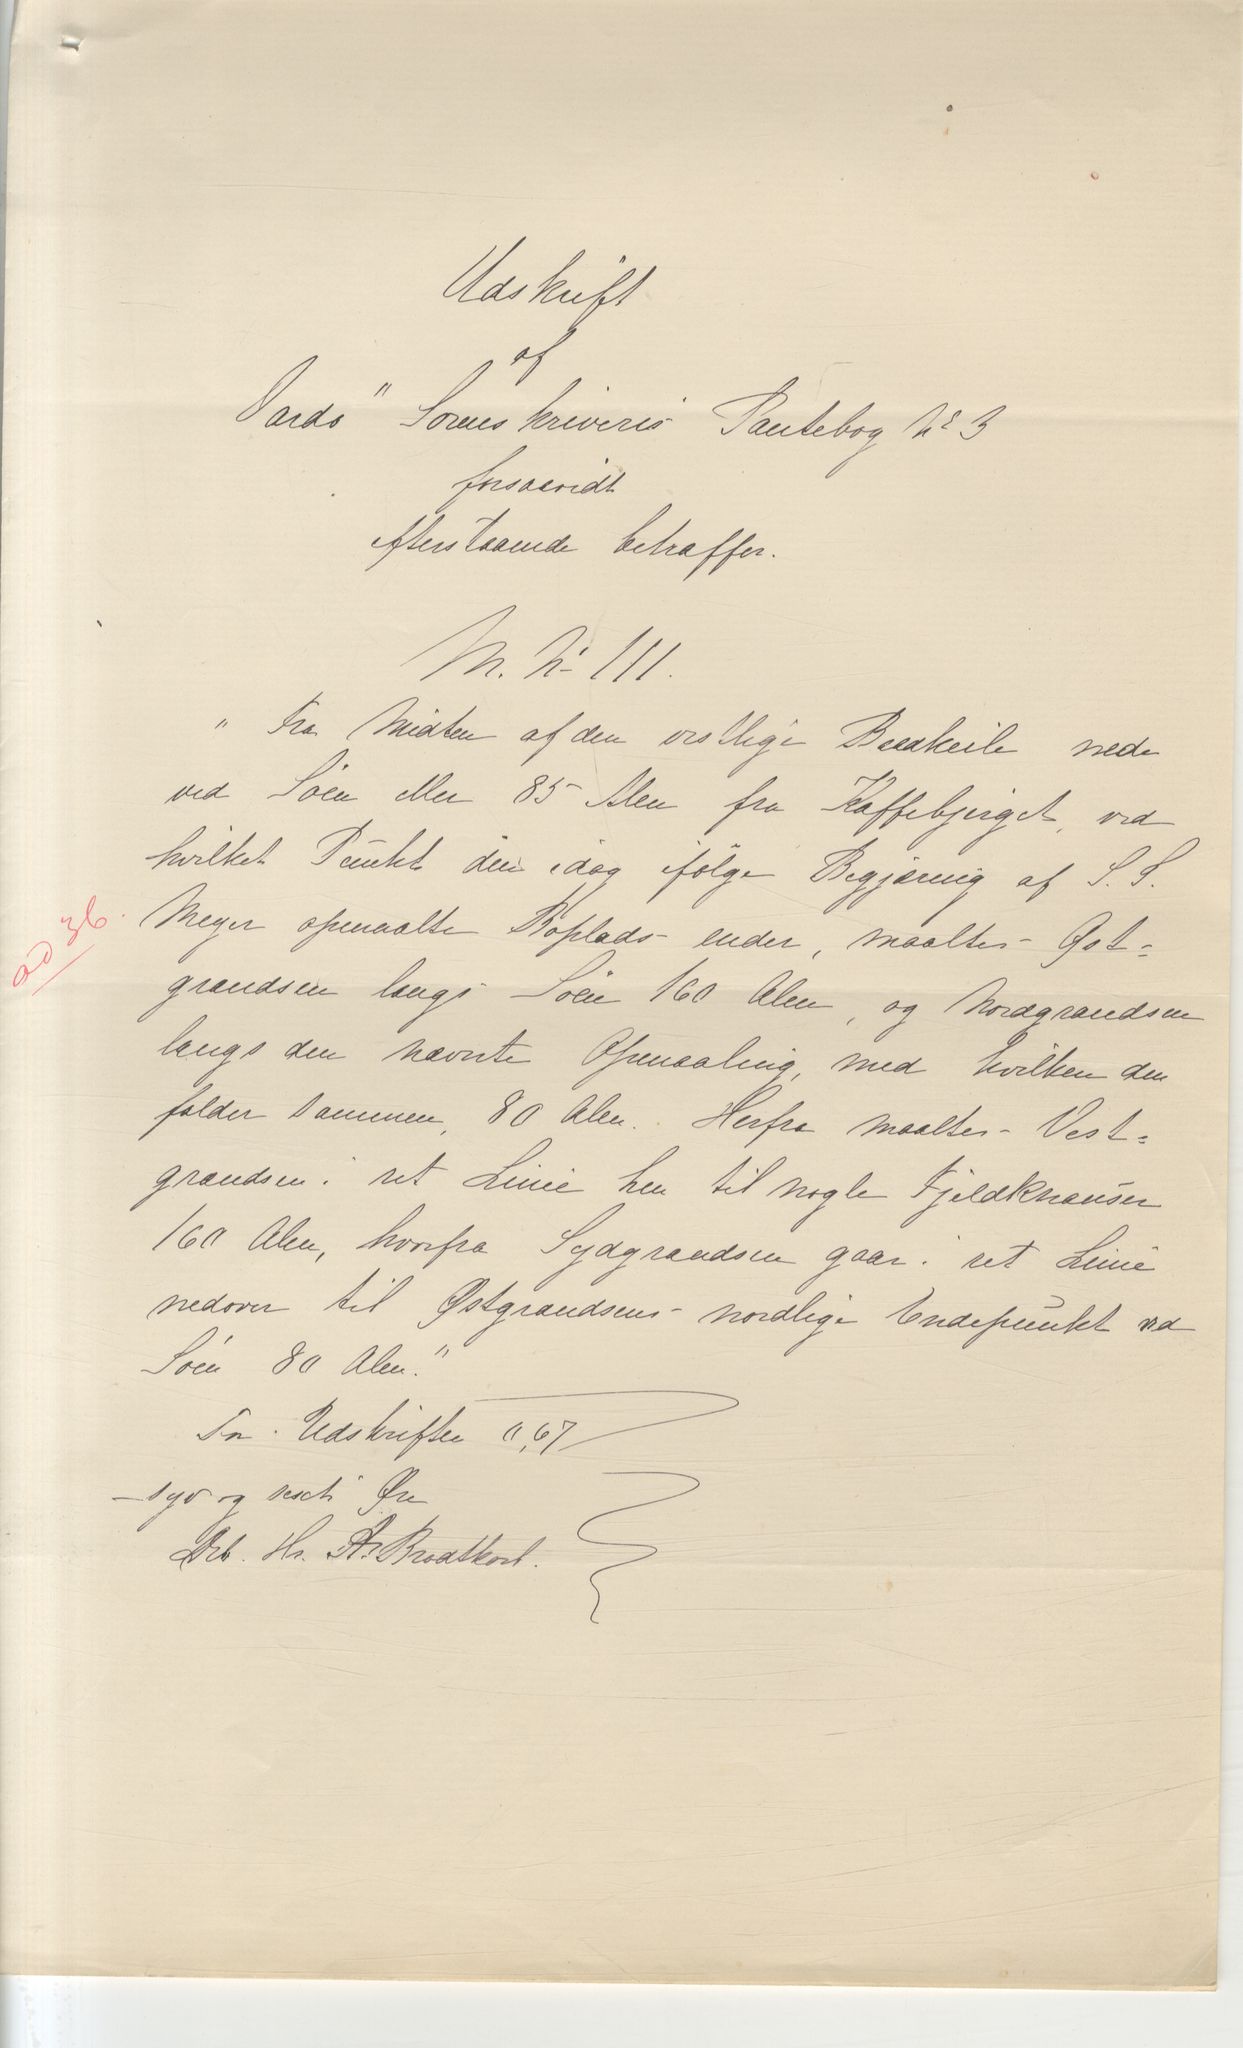 Udskrift
af
Vardö Sorenskriveris Pantebog No 3
forsaavidt
efterstaaende betræffer.
M. No 111.
" Fra Midten af den vestlige Baadkeile nede
ved Söen eller 85 Alen fra Kaffebjerget, ved
hvilket Punkt den idag ifölge Begjæring af S. S.
Meyer opmaalte Boplads ender, maaltes Øst-
ad 36.
grændsen langs Söen 160 Alen, og Nordgrændsen
langs den nævnte Opmaaling, med hvilken den
falder sammen, 80 Alen. Herfra maaltes Vest-
grændsen i ret Linie hen til nogle Fjeldknauser
160 Alen, hvorfra Sydgrændsen gaar i ret Linie
nedover til Østgrændsens nordlige Endepunkt ved
Söen 80 Alen."
For Udskriften 0,67
- syv og sexti Øre
Hr. Brodtkorb.